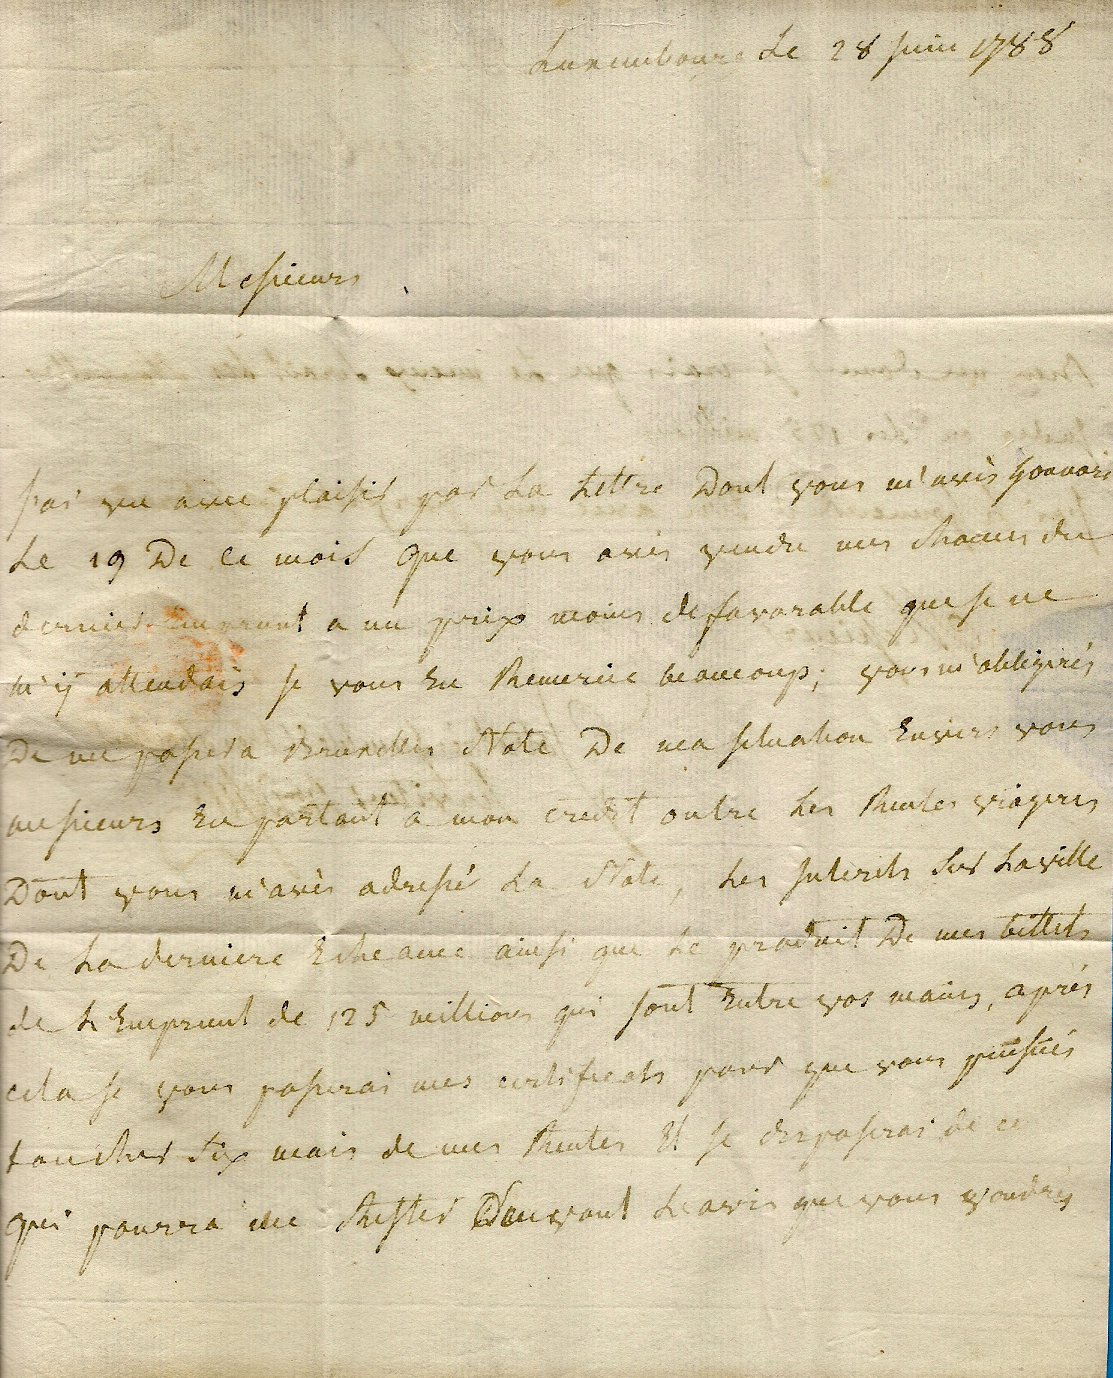 Luxembourg Le 28 juin 1788
Messieurs
j'ai vu avec plaisir par La Lettre Dont vous m'avés honnoré
Le 19 De ce mois que vous avés vendu mes chances du
dernier Emprunt a un prix moins defavorable que je ne
m'ÿ attendais je vous En Remercie beaucoup; vous m'obligerés
De me passer a Bruxelles Note De ma situation Envers vous
messieurs En portant a mon credit outre Les Rentes viageres
Dont vous m'avés adressé La Note, Les Interets sur La ville
De La derniere Echeance ainsi que Le produit De mes billets
de L'Emprunt de 125 millions qui sont Entre vos mains, après
cela je vous passerai mes certificats pour que vous puissiés
toucher six mois de mes Rentes Et je disposerai de ce
qui pourra me Rester D'aupres L'avis que vous voudrés